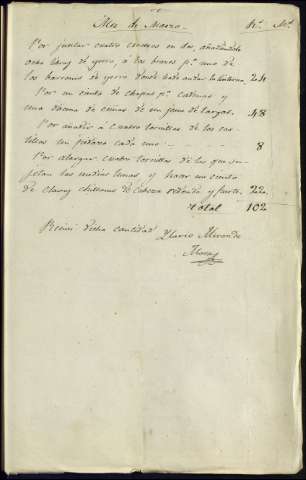 Mes de Marzo. R.s M.s
Por juntar cuatro en dos, añadiendo
ocho de yerro, á los brazos p.a uno de
los barrones de yerro donde 24
Por un ciento de chapas p.a cabezas y
una docena de de jaras de largas. 48
Por añadir á cuatro tornillos de los
un pedazo cada uno 8
Por alargar cuatro tornillos de los que su-
jetan las medias lunas, y hacer un ciento
de clavos chillones de cabeza redonda y fuerte. 22
Total 102
Recivi dicha cantidad
Ylario Miranda